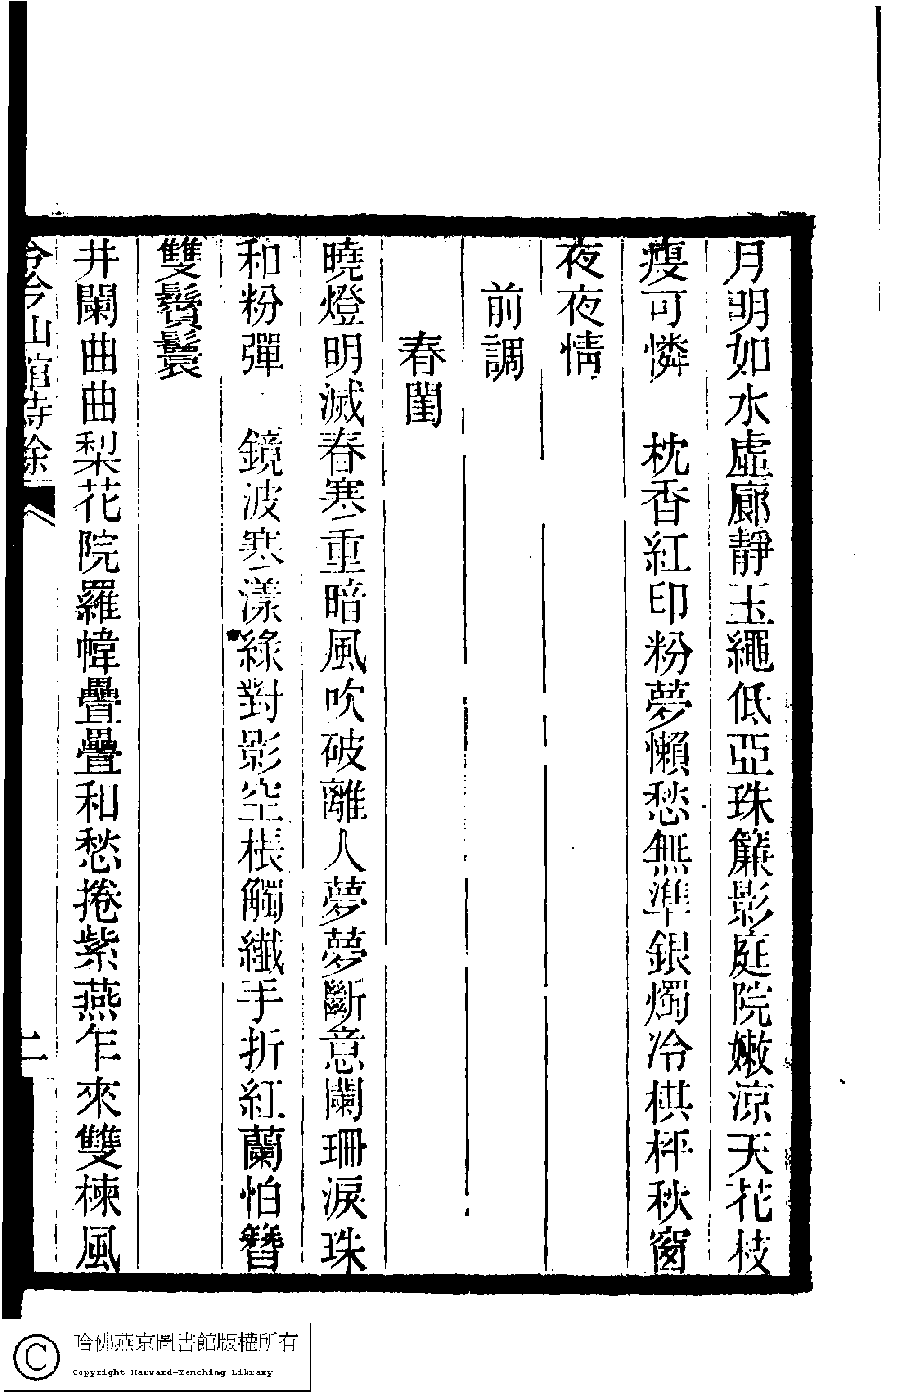 月明如水虛廊靜玉繩低亞珠簾影庭院嫩涼天花枝
瘦可憐　枕香紅印粉夢懶愁無準銀燭冷棋枰秋窗
夜夜情
前調
春閨
曉燈明滅春寒重暗風吹破離人夢夢斷意闌珊淚珠
和粉彈　鏡波寒漾綠對影空棖觸纖手折紅蘭怕簪
雙鬢鬟
井闌曲曲梨花院羅幃疊疊和愁捲紫燕乍來雙楝風
山館詩餘
二
哈佛燕京圖書館版權所有
Copyright Harvard-Yenching Library